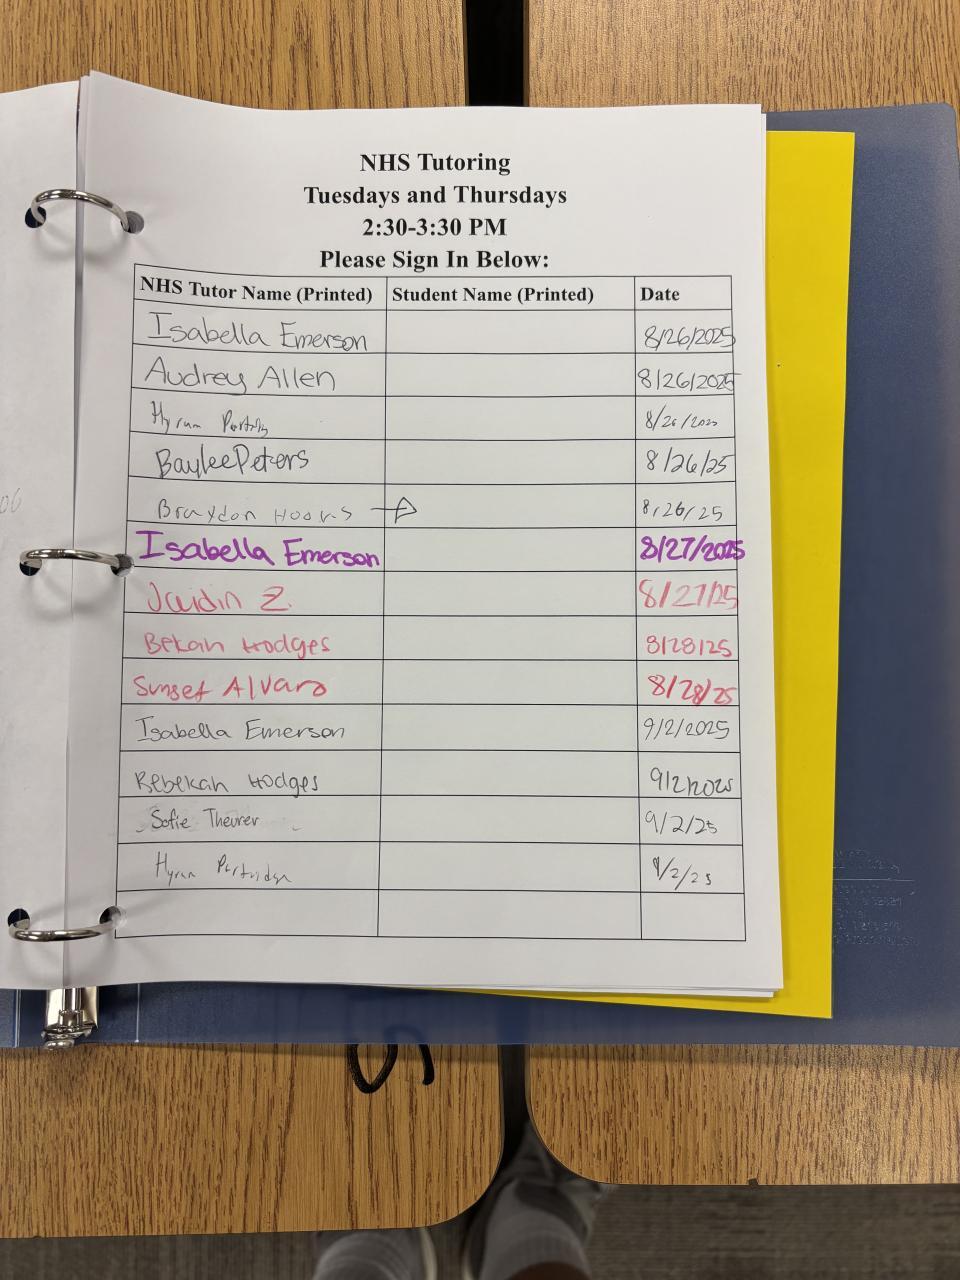 NHS Tutoring
Tuesdays and Thursdays
2:30-3:30 PM
Please Sign In Below:
NHS Tutor Name (Printed) Student Name (Printed) Date
Isabella Emerson 8/26/2025
Audrey Allen 8/26/2025
Hyrum 8/26/2025
Baylee Peters 8/26/25
Braydon Hooks → 8/26/25
Isabella Emerson 8/27/2025
Jaidin Z. 8/27/25
Bekah Hodges 8/28/25
Sunset Alvaro 8/28/25
Isabella Emerson 9/2/2025
Rebekah Hodges 9/2/2025
Sofie Theurer 9/2/25
Hyrum Partridge 9/2/25